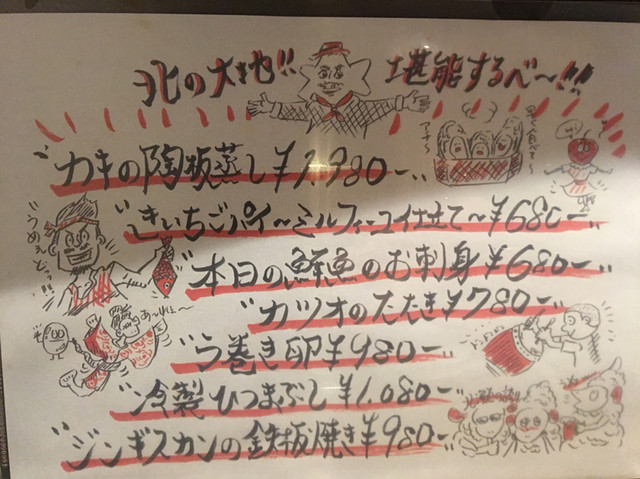 北の大地!! 堪能するべ〜!!!
"カキの陶板蒸し ¥1,980-"
"きいちごパイ〜ミルフィーユ仕立て〜¥680-
"本日の鮮魚のお刺身 ¥680-
"カツオのたたき ¥780-
"う巻き卵 ¥980-
"冷製ひつまぶし ¥1,080-
"ジンギスカンの鉄板焼き ¥980-
うめぇどっ!!
あ〜れぇ〜